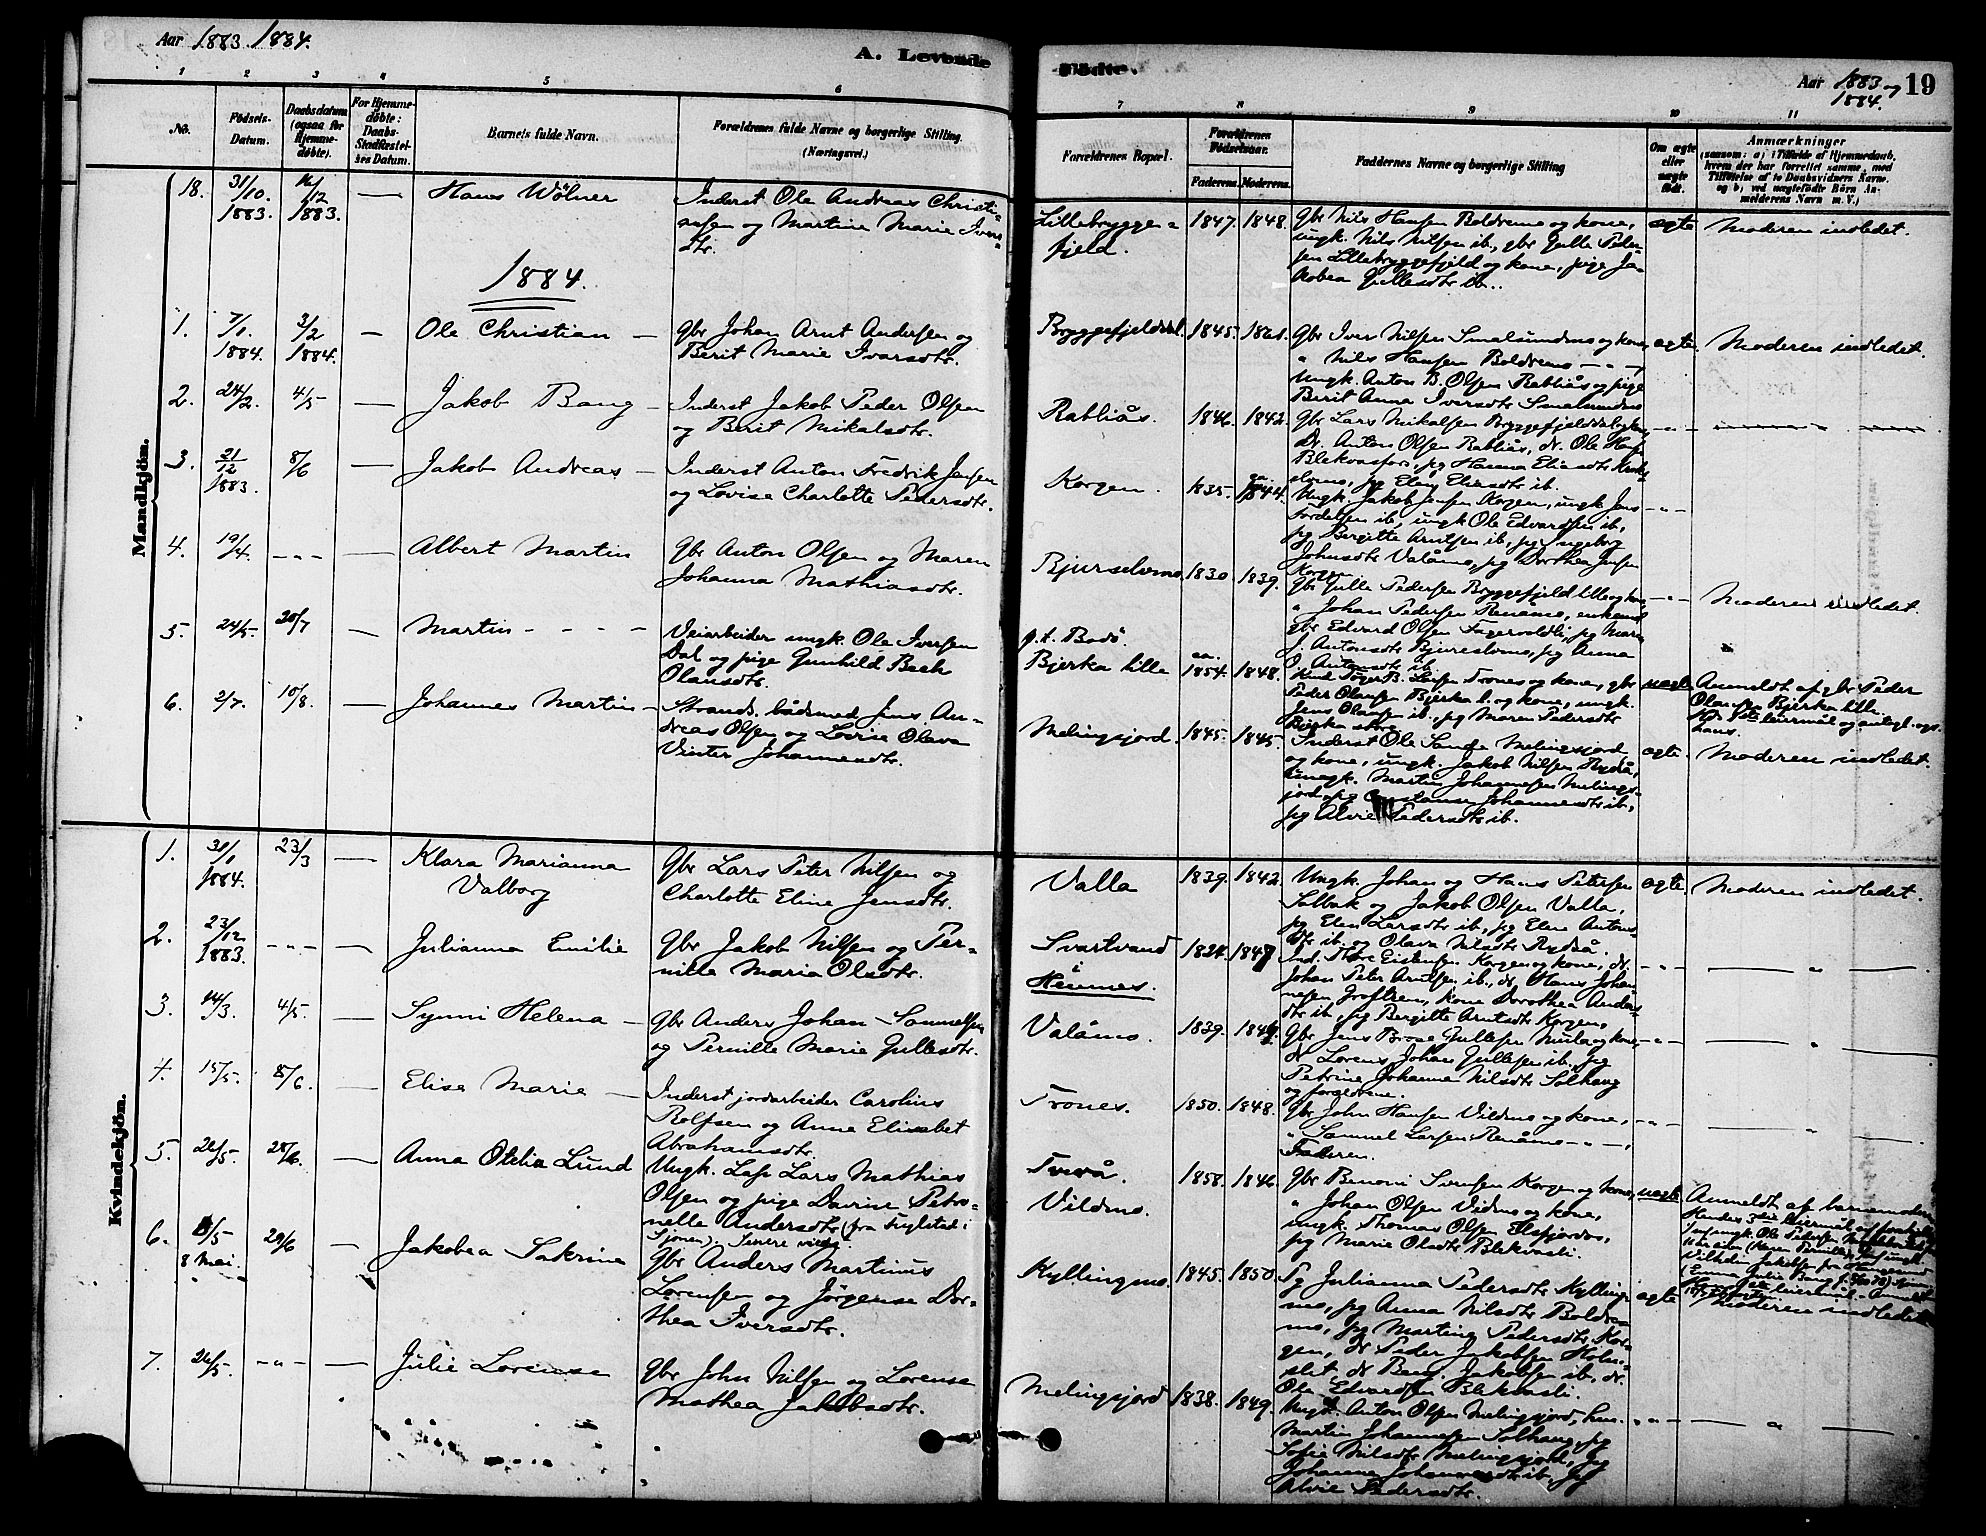 Aar 1883 1884.
A. Levende
Fødte.
Aar 1883 og 1884.
19
1 2 3 4 5 6
7 8 9 10 11
No.
Fødsels-Datum.
Daabsdatum (ogsaa for Hjemme-døbte).
For Hjemme-døbte: Daabs-Stadfæstel-ses Datum.
Barnets fulde Navn.
Forældrenes fulde Navne og borgerlige Stilling.
(Næringsvei.)
Forældrenes Bopæl.
Forældrenes Fødselsaar.
Faderens. Moderens.
Faddernes Navne og borgerlige Stilling
Om ægte eller uægte født.
Anmærkninger
(saasom: a) i Tilfælde af Hjemmedaab, hvem der har forrettet samme, med Tilføielse af to Daabsvidners Navne, og b) ved uægtefødte Børn Anmelderens Navn m. V.)
Mandkjön.
18. 31/10 1883. /12 1883. — Hans Wölner
Inderst Ole Andreas Christi-
ansen og Martine Marie Ivers-
dtr.
Lillebryggen-
fjeld.
1847. 1848.
Gbr Nils Hansen Boldremo og kone,
ungk. Nils Nilsen ib, gbr Gulle Peder-
sen Lillebryggefjeld og kone, pige Ja-
kobea Gullesdtr ib..
ægte Moderen indledet.
1884.
1. 7/1 1884. 3/2 1884. — Ole Christian —
Gbr Johan Arnt Andersen og
Berit Marie Ivarsdtr.
Bryggefjelddal. 1845. 1861.
Gbr Iver Nilsen Smalsundmo og kone,
" Nils Hansen Boldremo — " —,
Ungk. Anton B. Olsen Rabliås og pige
Berit Anna Iversdtr Smalsundmo
ægte. Moderen indledet.
2. 24/2. 4/5 — Jakob Bang —
Inderst Jakob Peder Olsen
og Berit Mikalsdtr.
Rabliås. 1846. 1842.
Gbr Lars Mikalsen Bryggefjelddal og kone,
Dr. Anton Olsen Rabliås, dr. Ole Hans.
Blekvasfors, pig Hanna Eliasdtr
pg Elen Eliasdtr ib.
3. 21/12 1883. 8/6 — Jakob Andreas —
Inderst Anton Fredrik Jensen
og Lovise Charlotte Pedersdtr.
Korgen. 1835. 1844.
Ungk. Jakob Jensen Korgen, ungk Jens
ib, ungk Ole Edvardsen ib,
pg Bergitte Arntsen ib, pg Ingeborg
Johnsdtr Valåmo, pg Dorthea Jensen
Korgen
4. 19/4. — " — — Albert Martin
Gbr Anton Olsen og Maren
Johanna Mathiasdtr.
Bjurselvmo. 1830. 1839.
Gbr Gulle Pedersen Bryggefjeld lille og kone
" Johan Pedersen Renåmo, enkemd
gbr Edvard Olsen Fagervoldli, pg Maren
J. Antonsdtr Bjurselvmo, pg Anna
O. Antonsdtr ib.
Moderen indledet.
5. 24/5. 20/7 — Martin - - - -
Veiarbeider ungk Ole Iversen
Dal og pige Gunhild Beck
Olausdtr.
p.t. Bodö
Bjerka lille 1854. 1848.
Trones og kone, gbr
Peder Olausen Bjerka l. og kone, ungk.
Jens Olausen ib, pg Maren Pedersdtr
Bjerka store
uægte Anmeldt af gbr Peder
Olausen Bjerka lille.
6. 2/7. 10/8. — Johannes Martin —
Strands. bådsmed Jens An-
dreas Olsen og Lovise Olava
Vinter Johannesdtr.
Melingsjord. 1845. 1845.
Inderst Ole Sande Melingsjord
og kone, ungk. Jakob Nilsen Rydså,
Ungk. Martin Johannesen Melings-
jord, pg Constanse Johannesdtr ib,
pg Alvie Pedersdtr ib.
ægte. Moderen indledet.
Kvindekjön.
1. 30/1 1884. 23/3 — Klara Marianna
Valborg
Gbr Lars Peter Nilsen og
Charlotte Eline Jensdtr.
Valla 1839. 1842.
Ungk. Johan og Hans Petersen
Solbak og Jakob Olsen Valla,
pg Elen Larsdtr ib, pg Elen Antons-
dtr ib. og Olava Nilsdtr Rydså.
ægte. Moderen indledet.
2. 23/12 1883. — " — — Julianna Emilie
Gbr Jakob Nilsen og Per-
nille Maria Olsdtr.
Svartvand
i
Hemnes.
1824. 1847
Ind. Thore Eistensen Korgen og kone, dr.
Johan Peter Arntsen ib., dr Hans Johan-
nesen Groftrem, kone Dorothea Anders-
dtr ib, pg Bergitte Arntsdtr Korgen,
3. 14/3. 4/5. — Synni Helena —
Gbr Anders Johan Samuelsen
og Pernille Marie Gullesdtr.
Valåmo. 1839. 1849.
Gbr Jens Brose Gullesen Mula og kone,
dr Lorens Johan Gullesen ib, pg
Petrine Johanna Nilsdtr Solhaug
og forældrene.
4. 15/5. 8/6. — Elisa Marie —
Inderst jordarbeider Carolius
Rolfsen og Anne Elisabet
Abrahamsdtr.
Trones. 1850. 1848.
Gbr John Hansen Vildmo og kone,
" Samuel Larsen Renåmo — " —,
Faderen.
5. 26/5. 28/6. — Anna Otelia Lund
Ungk. Lap Lars Mathias
Olsen og pige Davine Petro-
nelle Andersdtr (fra Fuglstad i
Tverå.
Vildmo.
1858. 1846.
Gbr Benoni Svensen Korgen og kone,
" Johan Olsen Vidmo og kone,
ungk. Thomas Olsen Elsfjordos,
pg Marie Olsdtr Blekvasli.
uægte Anmeldt af barnemoderen
6. /5. 8 Mai. 29/6 — Jakobea Sakrine
Gbr Anders Martinus
Lorensen og Jörgense Dor-
thea Iversdtr.
Kyllingmo. 1845. 1850.
Pg Julianna Pedersdtr Kylling-
mo, pg Anna Nilsdtr Boldre-
mo, pg Martina Pedersdtr Kor-
gen, dr Peder Jakobsen Holm-
slet, dr Benj. Jakobsen ib, dr.
Ole Edvardsen Blekvasli.
ægte Moderen indledet
7. 26/5. — " — — Julie Lorense
Gbr John Nilsen og Lorense
Mathea Jakobsdtr.
Melingsjord 1838. 1849.
Ungk. Anton Olsen Melingsjord,
Martin Johannesen Solhaug, pg
Sofie Nilsdtr Melingsjord, pg
Johanna Johannesdtr ib, pg
Alvie Pedersdtr.